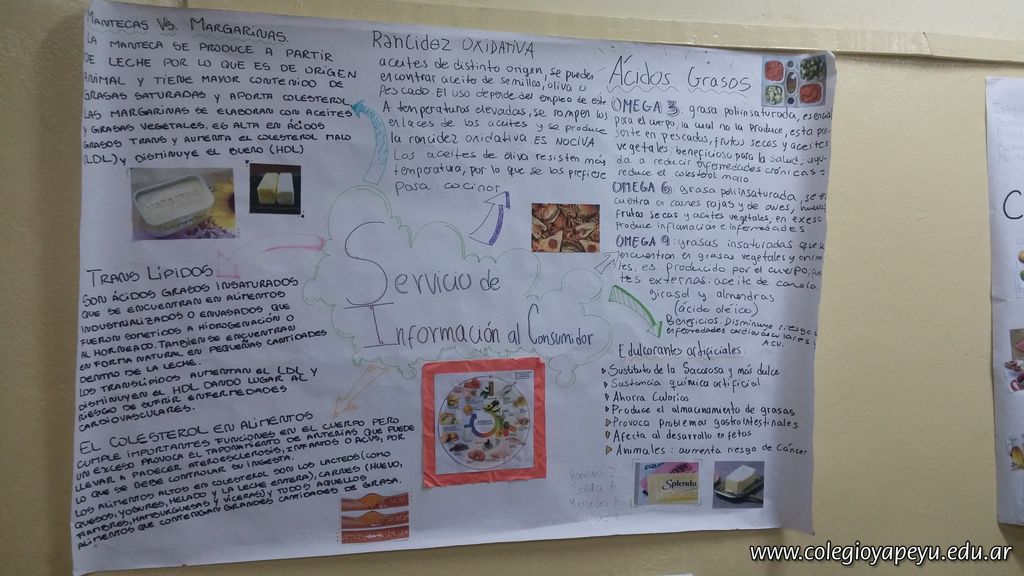 MANTECAS VS. MARGARINAS.
LA MANTECA SE PRODUCE A PARTIR
DE LECHE POR LO QUE ES DE ORIGEN
ANIMAL Y TIENE MAYOR CONTENIDO DE
GRASAS SATURADAS Y APORTA COLESTEROL
LAS MARGARINAS SE ELABORAN CON ACEITES
Y GRASAS VEGETALES, ES ALTA EN ÁCIDOS
GRASOS TRANS Y AUMENTA EL COLESTEROL MALO
(LDL) Y DISMINUYE EL BUENO (HDL)
RANCIDEZ OXIDATIVA
aceites de distinto origen, se pueden
encontrar aceite de semillas, oliva o
pescado. El uso depende del empleo de este
A temperaturas elevadas, se rompen los
enlaces de los aceites y se produce
la rancidez oxidativa. ES NOCIVA
Los aceites de oliva resisten más
temperatura, por lo que se los prefiere
para cocinar
Ácidos Grasos
OMEGA 3: grasa poliinsaturada, esencial
para el cuerpo, la cual no la produce, esta pre
sente en pescados, frutos secos y aceites
vegetales, beneficioso para la salud, ayu
da a reducir enfermedades crónicas y
reduce el colesterol malo
OMEGA 6: grasa poliinsaturada, se en
cuentra en carnes rojas y de aves, huevos
frutos secos y aceites vegetales, en exeso
produce inflamación e enfermedades
OMEGA 9: grasas insaturadas que se
encuentran en grasas vegetales y anima
les, es producido por el cuerpo, fuen
tes externas: aceite de canola
girasol y almendras
(ácido oleico)
Beneficios: Disminuye riesgo
enfermedades cardiovasculares y
ACV.
TRANS LÍPIDOS
SON ÁCIDOS GRASOS INSATURADOS
QUE SE ENCUENTRAN EN ALIMENTOS
INDUSTRIALIZADOS O ENVASADOS QUE
FUERON SOMETIDOS A HIDROGENACIÓN O
AL HORNEADO. TAMBIEN SE ENCUENTRAN
EN FORMA NATURAL EN PEQUEÑAS CANTIDADES
DENTRO DE LA LECHE.
LOS TRANSLÍPIDOS AUMENTAN EL LDL Y
DISMINUYEN EL HDL DANDO LUGAR AL
RIESGO DE SUFRIR ENFERMEDADES
CARDIOVASCULARES.
Servicio de
Información al Consumidor
EL COLESTEROL EN ALIMENTOS
CUMPLE IMPORTANTES FUNCIONES EN EL CUERPO PERO
UN EXCESO PROVOCA EL TAPONAMIENTO DE ARTERIAS QUE PUEDE
LLEVAR A PADECER ATEROESCLEROSIS, INFARTOS O ACVS, POR
LO QUE SE DEBE CONTROLAR SU INGESTA.
LOS ALIMENTOS ALTOS EN COLESTEROL SON LOS LACTEOS (COMO
QUESOS, YOGURES, HELADO Y LA LECHE ENTERA), CARNES (HUEVO,
FIAMBRES, HAMBURGUESAS Y VÍCERAS) Y TODOS AQUELLOS
ALIMENTOS QUE CONTENGAN GRANDES CANTIDADES DE GRASA.
Edulcorantes artificiales:
Sustituto de la Sacarosa y más dulce
Sustancia química artificial
Ahorra Calorías
Produce el almacenamiento de grasas
Provoca problemas gastrointestinales
Afecta al desarrollo en fetos
Animales: aumenta riesgo de cáncer
Splenda
www.colegioyapeyu.edu.ar